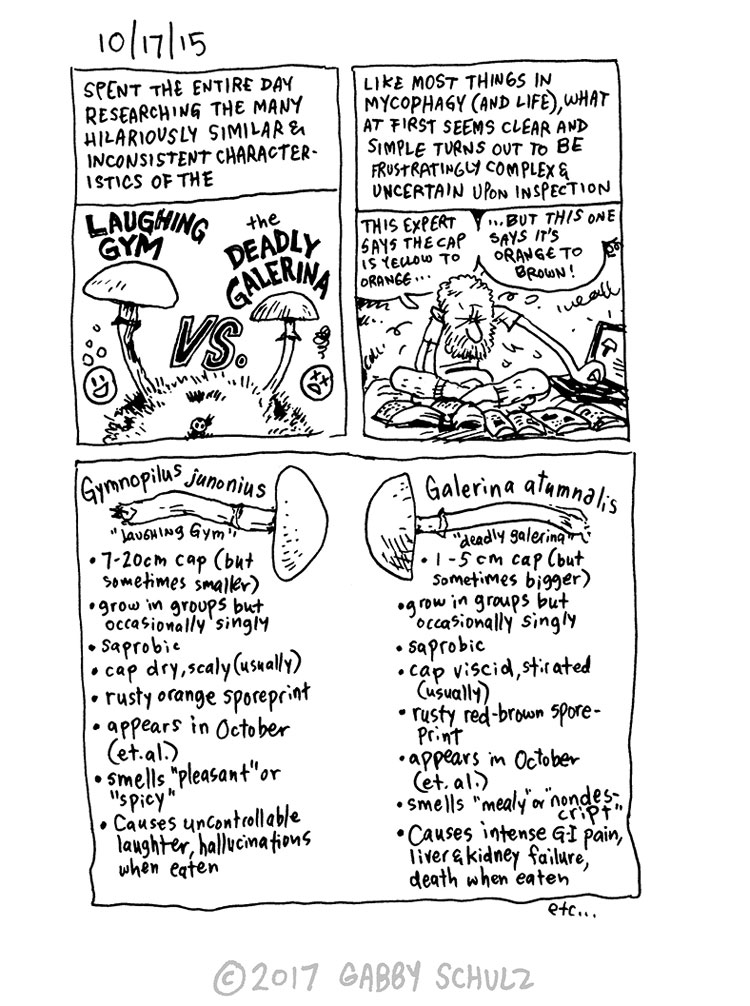 10/17/15
SPENT THE ENTIRE DAY
RESEARCHING THE MANY
HILARIOUSLY SIMILAR &
INCONSISTENT CHARACTER-
ISTICS OF THE
LAUGHING
GYM
VS.
the
DEADLY
GALERINA
LIKE MOST THINGS IN
MYCOPHAGY (AND LIFE), WHAT
AT FIRST SEEMS CLEAR AND
SIMPLE TURNS OUT TO BE
FRUSTRATINGLY COMPLEX &
UNCERTAIN UPON INSPECTION
THIS EXPERT
SAYS THE CAP
IS YELLOW TO
ORANGE...
...BUT THIS ONE
SAYS IT'S
ORANGE TO
BROWN!
Gymnopilus junonius
"LAUGHING GYM"
• 7-20cm cap (but
sometimes smaller)
• grow in groups but
occasionally singly
• saprobic
• cap dry, scaly (usually)
• rusty orange sporeprint
• appears in October
(et.al.)
• smells "pleasant" or
"spicy"
• Causes uncontrollable
laughter, hallucinations
when eaten
Galerina atumnalis
"deadly galerina"
• 1-5 cm cap (but
sometimes bigger)
• grow in groups but
occasionally singly
• saprobic
• cap viscid, stirated
(usually)
• rusty red-brown spore-
print
• appears in October
(et. al.)
• smells "mealy" or "nondes-
cript"
• Causes intense G-I pain,
liver & kidney failure,
death when eaten
etc...
© 2017 GABBY SCHULZ